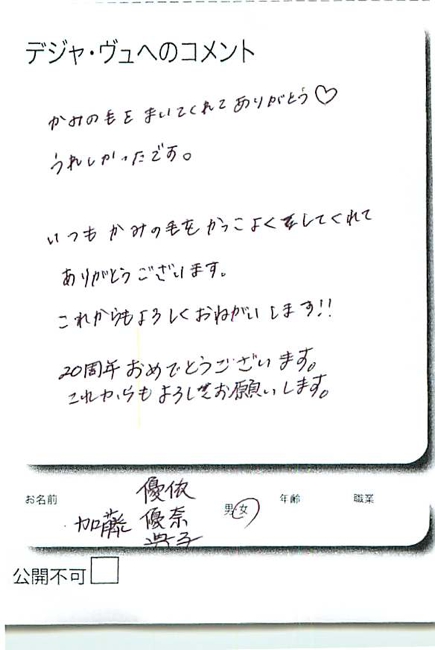 デジャ・ヴュへのコメント
かみの毛をまいてくれてありがとう♡
うれしかったです。
いつもかみの毛をかっこよくしてくれて
ありがとうございます。
これからもよろしくおねがいします!!
20周年おめでとうございます。
これからもよろしくお願いします。
お名前
優依
加藤 優奈
典子
男 女
年齢
職業
公開不可